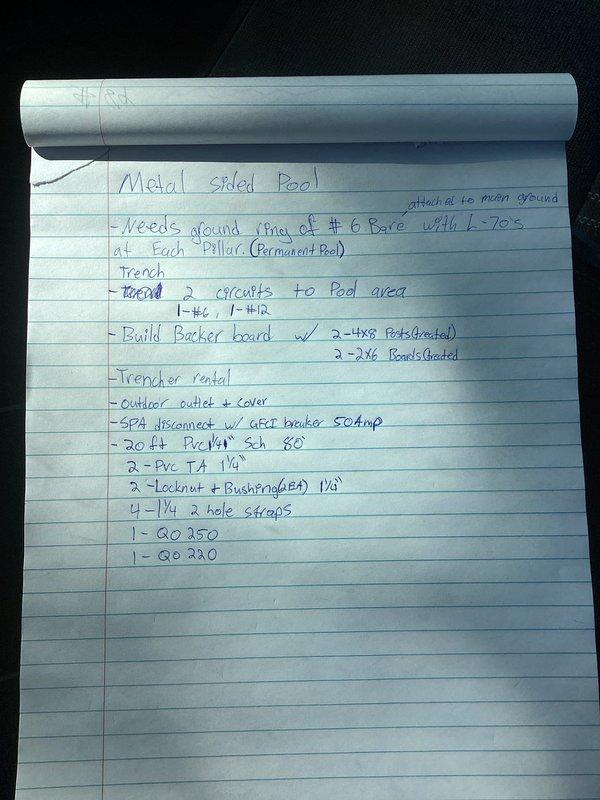 Metal sided Pool
attached to main ground
- Needs ground ring of #6 Bare with L-70's
at Each Pillar. (Permanent Pool)
Trench
- 2 circuits to Pool area
1-#6, 1-#12
- Build Backer board w/ 2-4x8 Posts(treated)
2-2x6 Boards(treated
- Trencher rental
- Outdoor outlet & cover
- SPA disconnect w/ GFCI breaker 50Amp
- 20 ft Pvc 1 1/4" Sch 80
2 - Pvc TA 1 1/4"
2 - Locknut & Bushing(2EA) 1 1/4"
4 - 1 1/4 2 hole straps
1 - QO 250
1 - QO 220